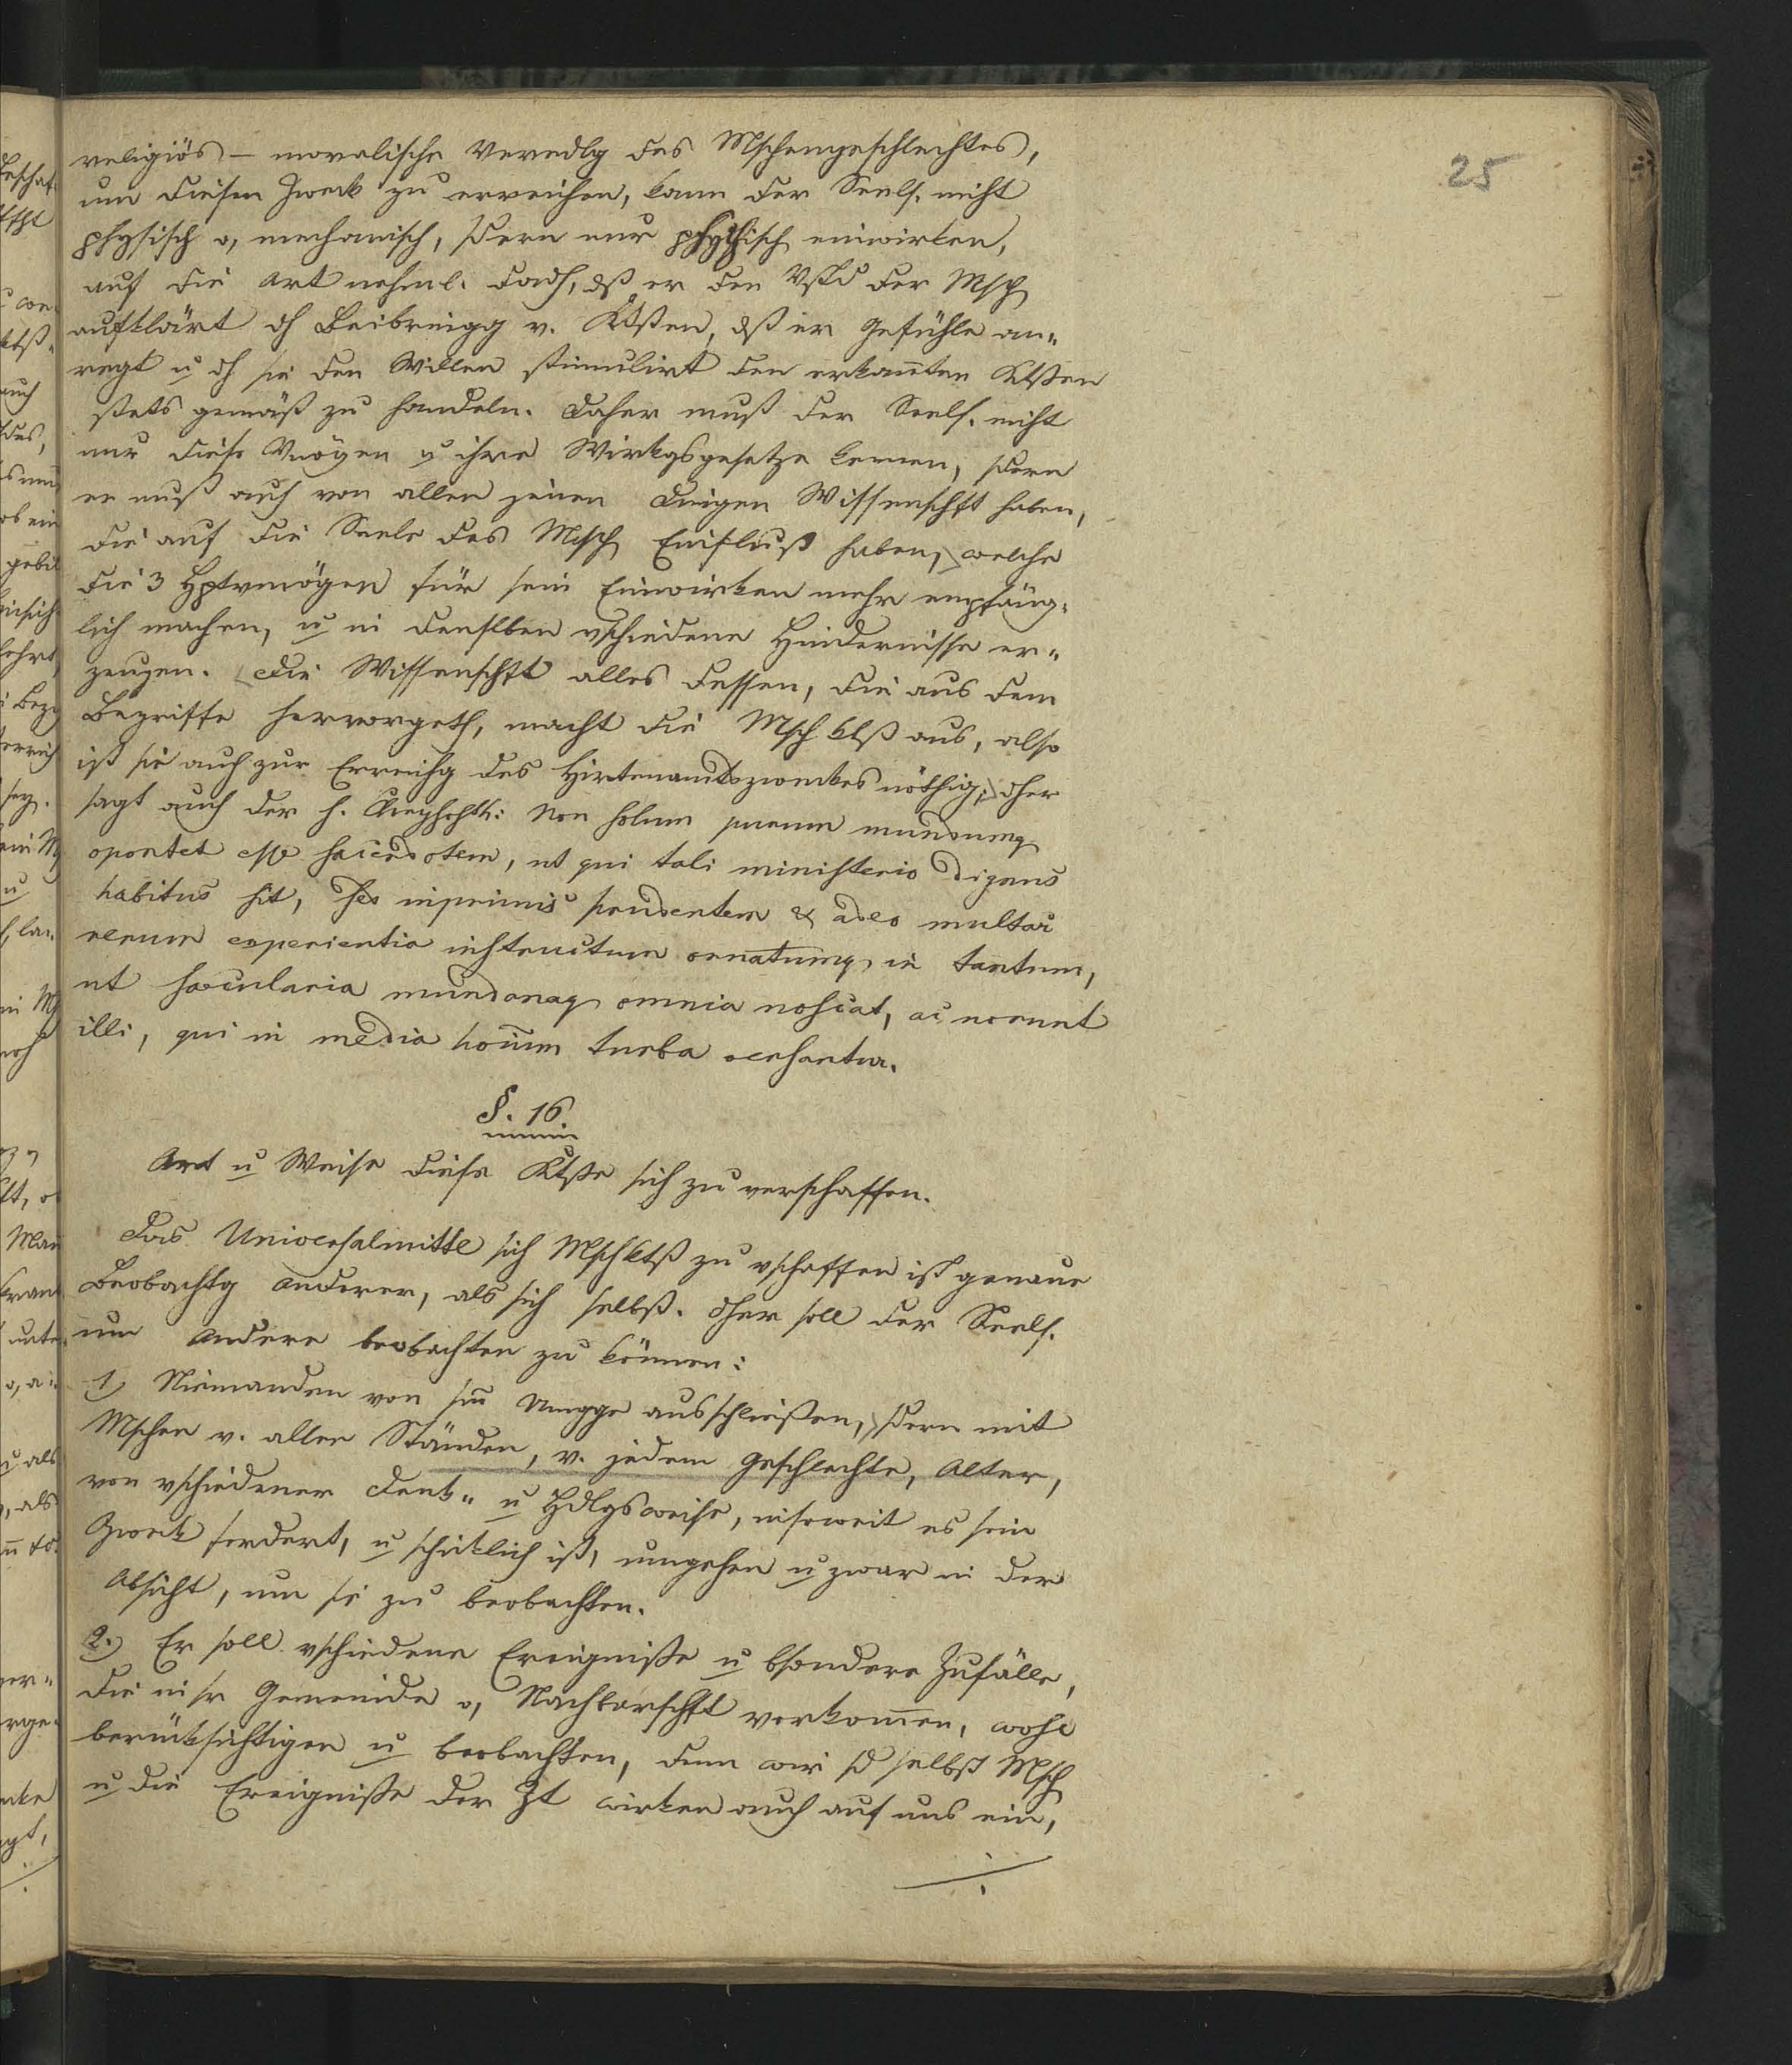 25
religiös – moralische Veredlg des Mschengeschlechtes,
um diesen Zweck zu erreichen, kann der Seels. nicht
physisch o, mechanisch, sdern nur psychisch einwirken,
auf die Art nehml. dadh, dß er den Vstd der Msch
aufklärt dh Beibringg v. Ktßen, dß er Gefühle an„
regt u dh sie den Willen stimulirt den erkan̄ten Ktßen
stets gemäß zu handeln. Daher muß der Seels. nicht
nur diese Vmögen u ihre Wirkgsgesetze kennen, sdern
er muß auch von allen jenen Dingen Wissenschft haben,
die auf die Seele des Msch Einfluß haben, welche
die 3 Hptvmögen für sein Einwirken mehr empfäng„
lich machen, u in denselben vschiedene Hindernisse er„
zeugen. Die Wissenschft alles dessen, die aus dem
Begriffe hervorgeth, macht die Msch ktß aus, also
ist sie auch zur Erreichg des Hirtenamtszweckes nöthig; dher
sagt auch der h. Non solum purum mundumq
oportet esse sacerdotem, ut qui tali ministerio dignus
habitus sit, sed inprimis prudentem & adeo multar
rerum experientia instructum ornatumq in tantum,
ut saecularia mundanaq omnia noscat, ac norunt
illi, qui in media houm turba versantur.
§. 16.
Art u Weise diese Ktße sich zu verschaffen.
Das Universalmittel sich Mschktß zu vschaffen ist genaue
Beobachtg anderer, als sich selbst. Dher soll der Seels.
um andere beobachten zu können:
1) Niemanden von sm̄ Umgge ausschließen, sdern mit
Mschen v. allen Ständen, v. jedem Geschlechte, Alter,
von vschiedener Denk„ u Hdlgsweise, insoweit es sein
Zweck fordert, u schicklich ist, umgehen u zwar in der
Absicht, um sie zu beobachten.
2.) Er soll vschiedene Ereigniße u bsondere Zufälle,
die in sr Gemeinde o, Nachbarschft vorkom̄en, wohl
berücksichtigen u beobachten, denn wir sd selbst Msch
u die Ereigniße der Zt wirken auch auf uns ein,